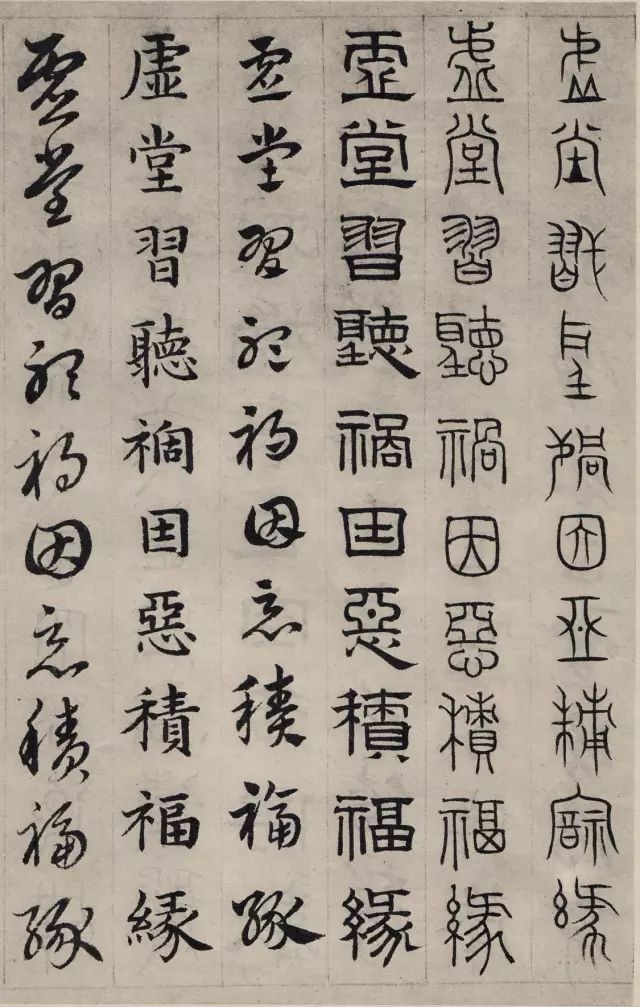 虛堂習聽禍因惡積福緣
虛堂習聽禍因惡積福緣
虛堂習聽禍因惡積福緣
虛堂習聽禍因惡積福緣
虛堂習聽禍因惡積福緣
虛堂習聽禍因惡積福緣